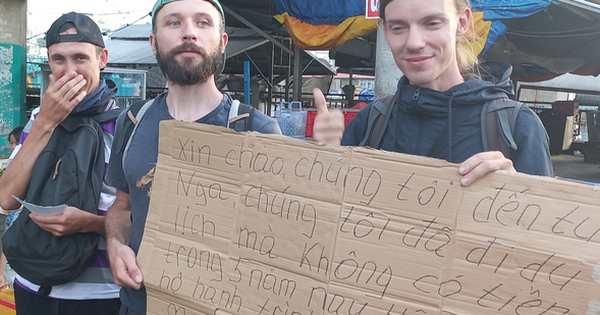 Xin chao, chúng tôi đến từ
Nga, chúng tôi đã đi du
lịch mà không có tiền
trong 5 năm nay
bộ hành